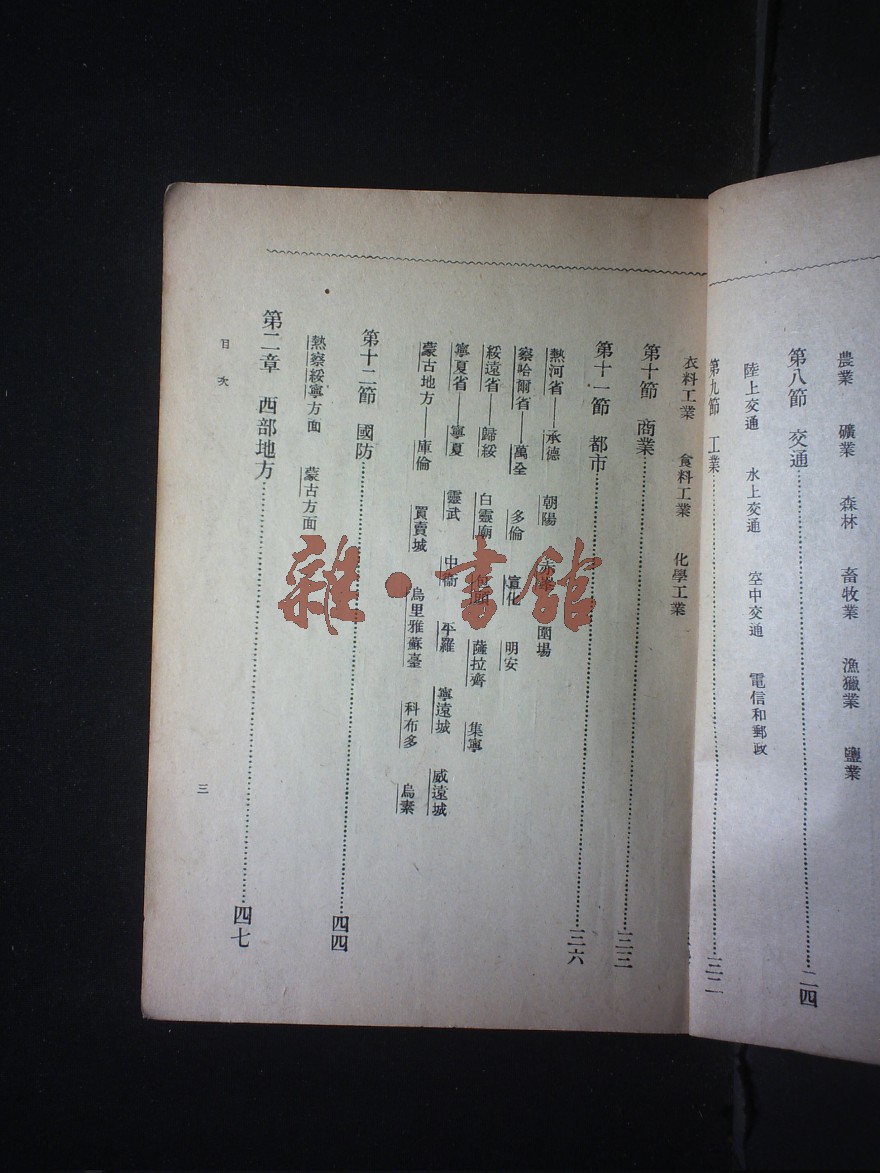 農業　礦業　森林　畜牧業　漁獵業　鹽業
第八節　交通……二四
陸上交通　水上交通　空中交通　電信和郵政
第九節　工業……三二
衣料工業　食料工業　化學工業
第十節　商業……三三
第十一節　都市……三六
熱河省——承德　朝陽　赤峯　圍場
察哈爾省——萬全　多倫　宣化　明安
綏遠省——歸綏　白靈廟　包頭　薩拉齊　集寧
寧夏省——寧夏　靈武　中衞　平羅　寧遠城　威遠城
蒙古地方——庫倫　買賣城　烏里雅蘇臺　科布多　烏素
第十二節　國防……四四
熱察綏寧方面　蒙古方面
第二章　西部地方……四七
目次
三
雜·書館